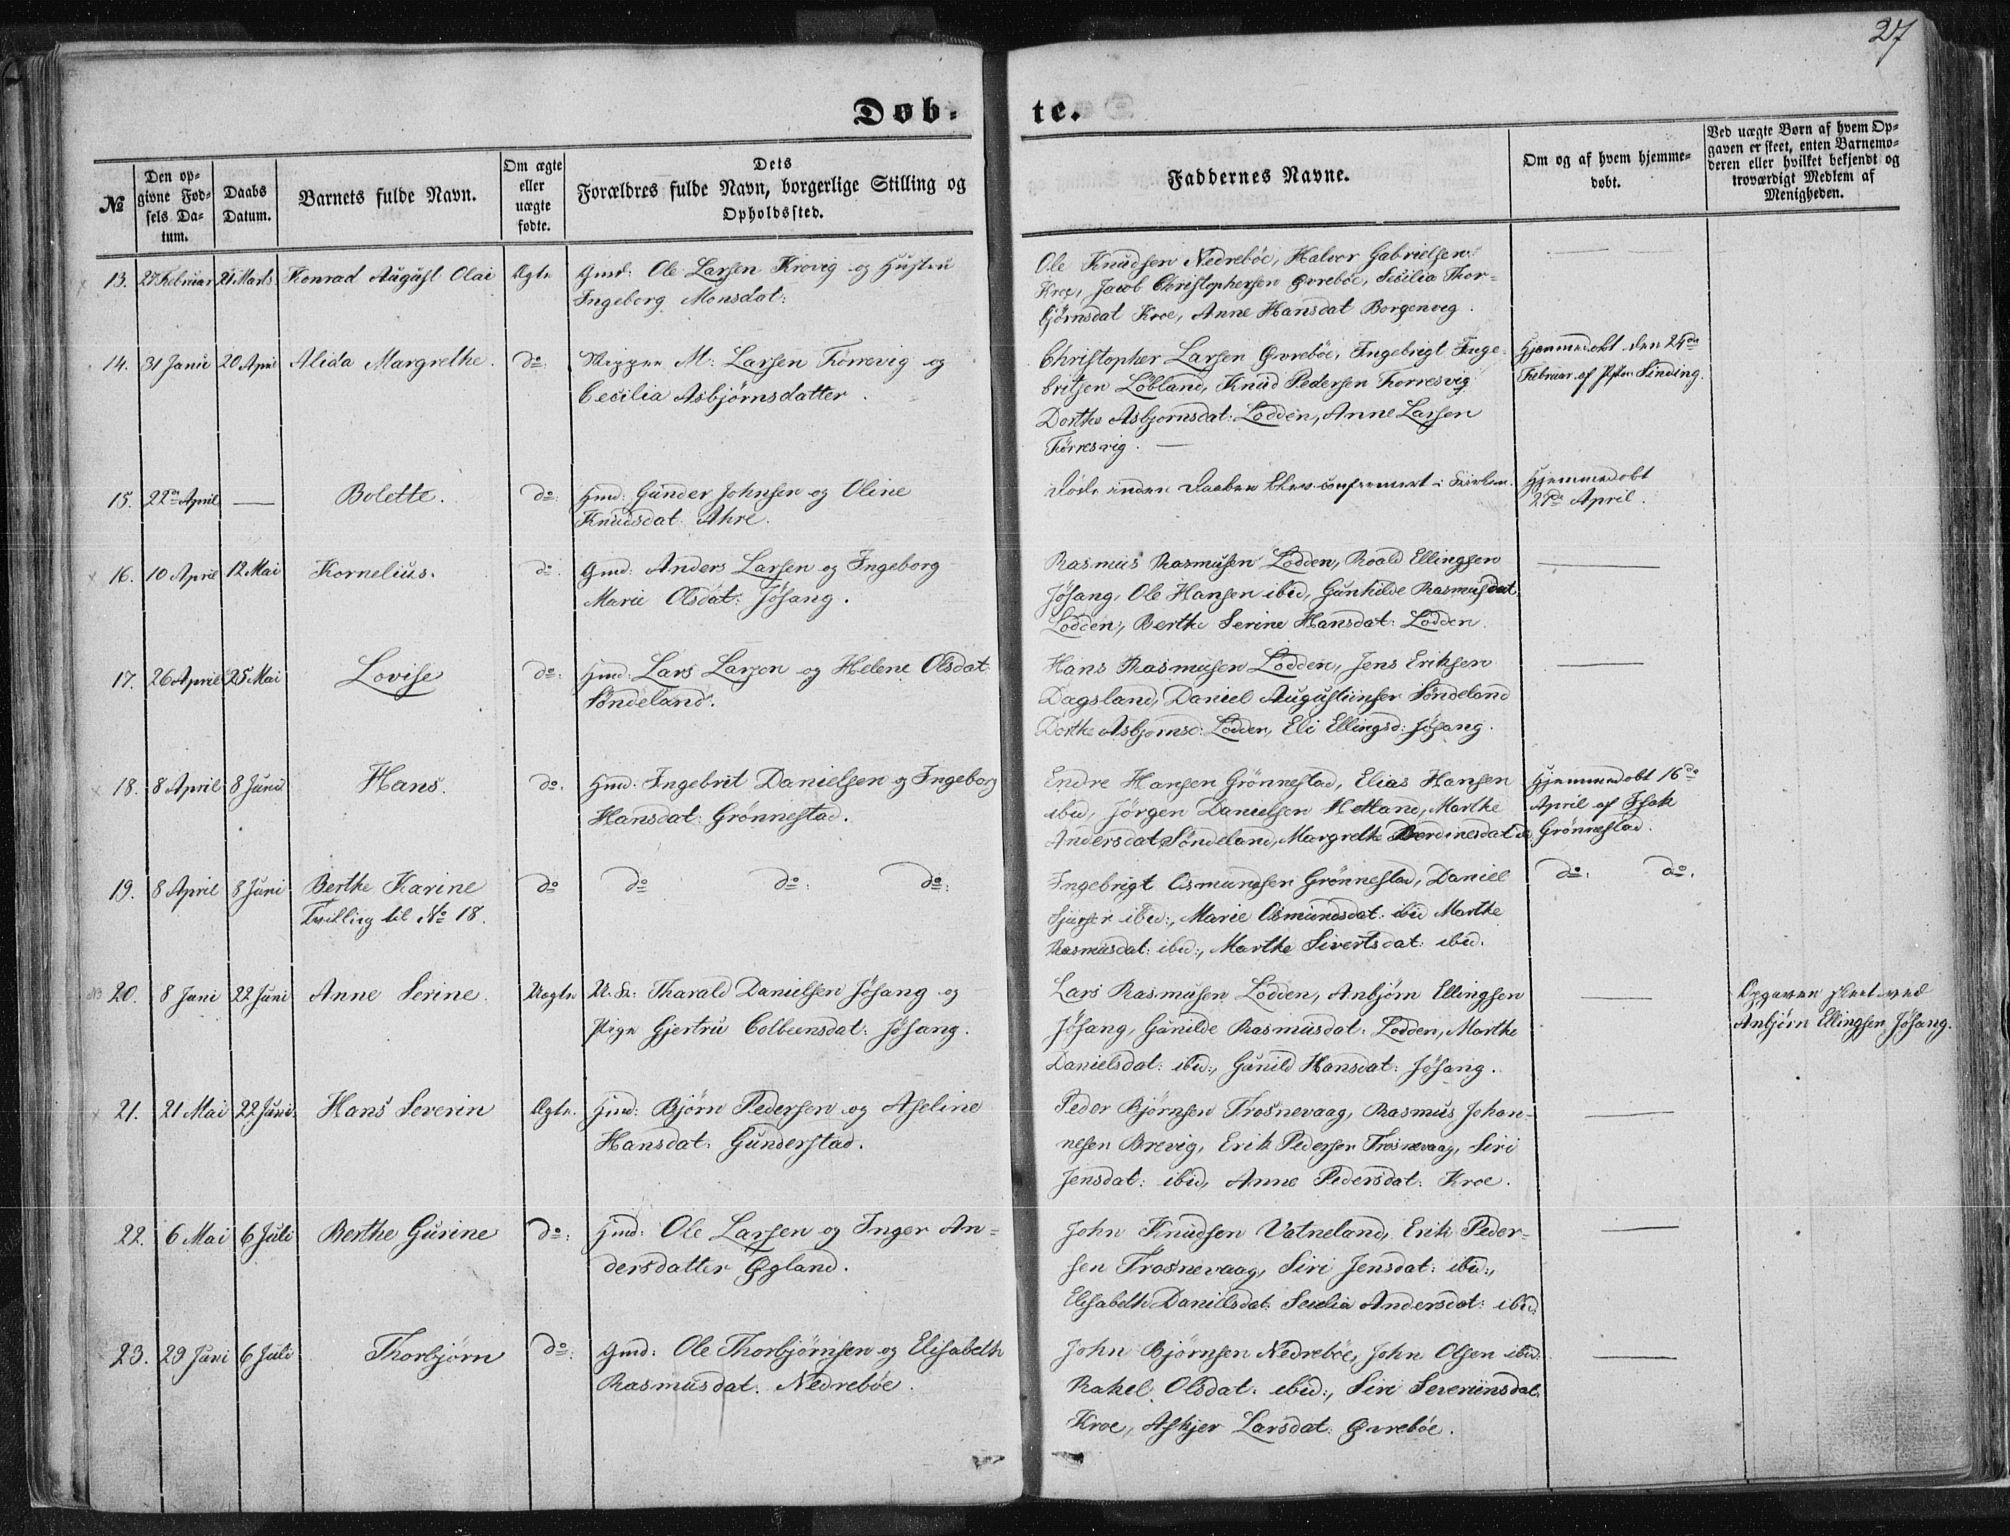 27
Døb-
te.
№
Den op-
givne Fød-
sels Da-
tum.
Daabs
Datum.
Barnets fulde Navn.
Om ægte
eller
uægte
fødte.
Dets
Forældres fulde Navn, borgerlige Stilling og
Opholdssted.
Faddernes Navne.
Om og af hvem hjemme-
døbt.
Ved uægte Børn af hvem Op-
gaven er skeet, enten Barnemo-
deren eller hvilket bekjendt og
troværdigt Medlem af
Menigheden.
13. 27 Februar 21 Marts Konrad August Olai Ægte Gmd: Ole Larsen Krovig og Hustru
Ingeborg Monsdat:
Ole Knudsen Nedrebøe, Halvor Gabrielsen
Kroe, Jacob Christophersen Øvrebøe, Sesilia Thor-
bjørnsdat Kroe, Anne Hansdat Borgenvig.
14. 31 Janu 20 April Alida Margrethe. do: Skipper M: Larsen Førrevig og
Cecilia Asbjørnsdatter.
Christopher Larsen Øvrebøe, Ingebrigt Inge-
britsen Løbland, Knud Pedersen Førresvig
Dorthe Asbjornsdat: Lodden, Anne Larsen
Førresvig.
Hjemmedøbt den 24de
Februar af Sinding.
15. 22de April — Bolette. do: Hmd: Gunder Johnsen og Oline
Knudsdat: Ahre.
Døde inden Daaben blev confirmert i Kirken.
Hjemmedøbt
April.
16. 10 April 12 Mai Kornelius. do: Gmd: Anders Larsen og Ingeborg
Marie Olsdat: Jøsang.
Rasmus Rasmusen Lodden, Roald Ellingsen
Jøsang, Ole Hansen ibid, Gunhilde Rasmusdat
Lodden, Berthe Serine Hansdat: Lodden.
17. 26 April 25 Mai Lovise do: Hmd: Lars Larsen og Helene Olsdat
Søndeland.
Hans Rasmusen Lodden, Jens Eriksen
Dagsland, Daniel Augustinsen Søndeland
Dorthe Asbjornsd: Lodden, Eli Ellingsd: Jøsang.
18. 8 April 8 Juni Hans. do. Hmd: Ingebrit Danielsen og Ingeborg
Hansdat: Grønnestad.
Endre Hansen Grønnestad, Elias Hansen
ibid, Jørgen Danielsen Hetland, Marthe
Andersdat Søndeland, Margrethe
Hjemmedøbt 16de
April af Isak
Grønnestad.
19. 8 April 8 Juni Berthe Karine do do do: do:
Tvilling til No 18.
Ingebrigt Osmundsen Grønnestad, Daniel
ibid:, Marie Osmundsdat: ibid Marthe
Rasmusdat: ibid:, Marthe Sivertsdat: ibid.
do: do.
20. 8 Juni 22 Juni Anne Serine. Uægte U. K: Tharald Danielsen Jøsang og
Pige Gjertru Colbeensdat: Jøsang.
Lars Rasmusen Lodden, Anbjørn Ellingsen
Jøsang, Gunilde Rasmusdat: Lodden, Marthe
Danielsdat: ibid:, Gunild Hansdat: Jøsang.
Opgaven skeet ved
Anbjørn Ellingsen Jøsang.
21. 21 Mai 22 Juni Hans Severin Ægte. Hmd: Bjørn Pedersen og Aseline
Hansdat: Gunderstad.
Peder Bjørnsen Trosnevaag, Rasmus Johan-
nesen Brevig, Erik Pedersen Trosnevaag, Siri
Jensdat: ibid, Anne Pedersdat: Kroe.
22. 6 Mai 6 Juli Berthe Gurine do: Hmd: Ole Larsen og Inger An-
dersdatter Øgland.
John Knudsen Vatneland, Erik Peder-
sen Trosnevaag, Siri Jensdat: ibid:,
Elisabeth Danielsdat: Secilia Andersdat: ibid.
23. 29 Juni 6 Juli Thorbjørn do: Gmd: Ole Thorbjørnsen og Elisabeth
Rasmusdat: Nedrebøe.
John Bjørnsen Nedrebøe, John Olsen ibid:
Rakel Olsdat: ibid:, Siri Severinsdat:
Kroe, Askjer Larsdat: Øvrebøe.